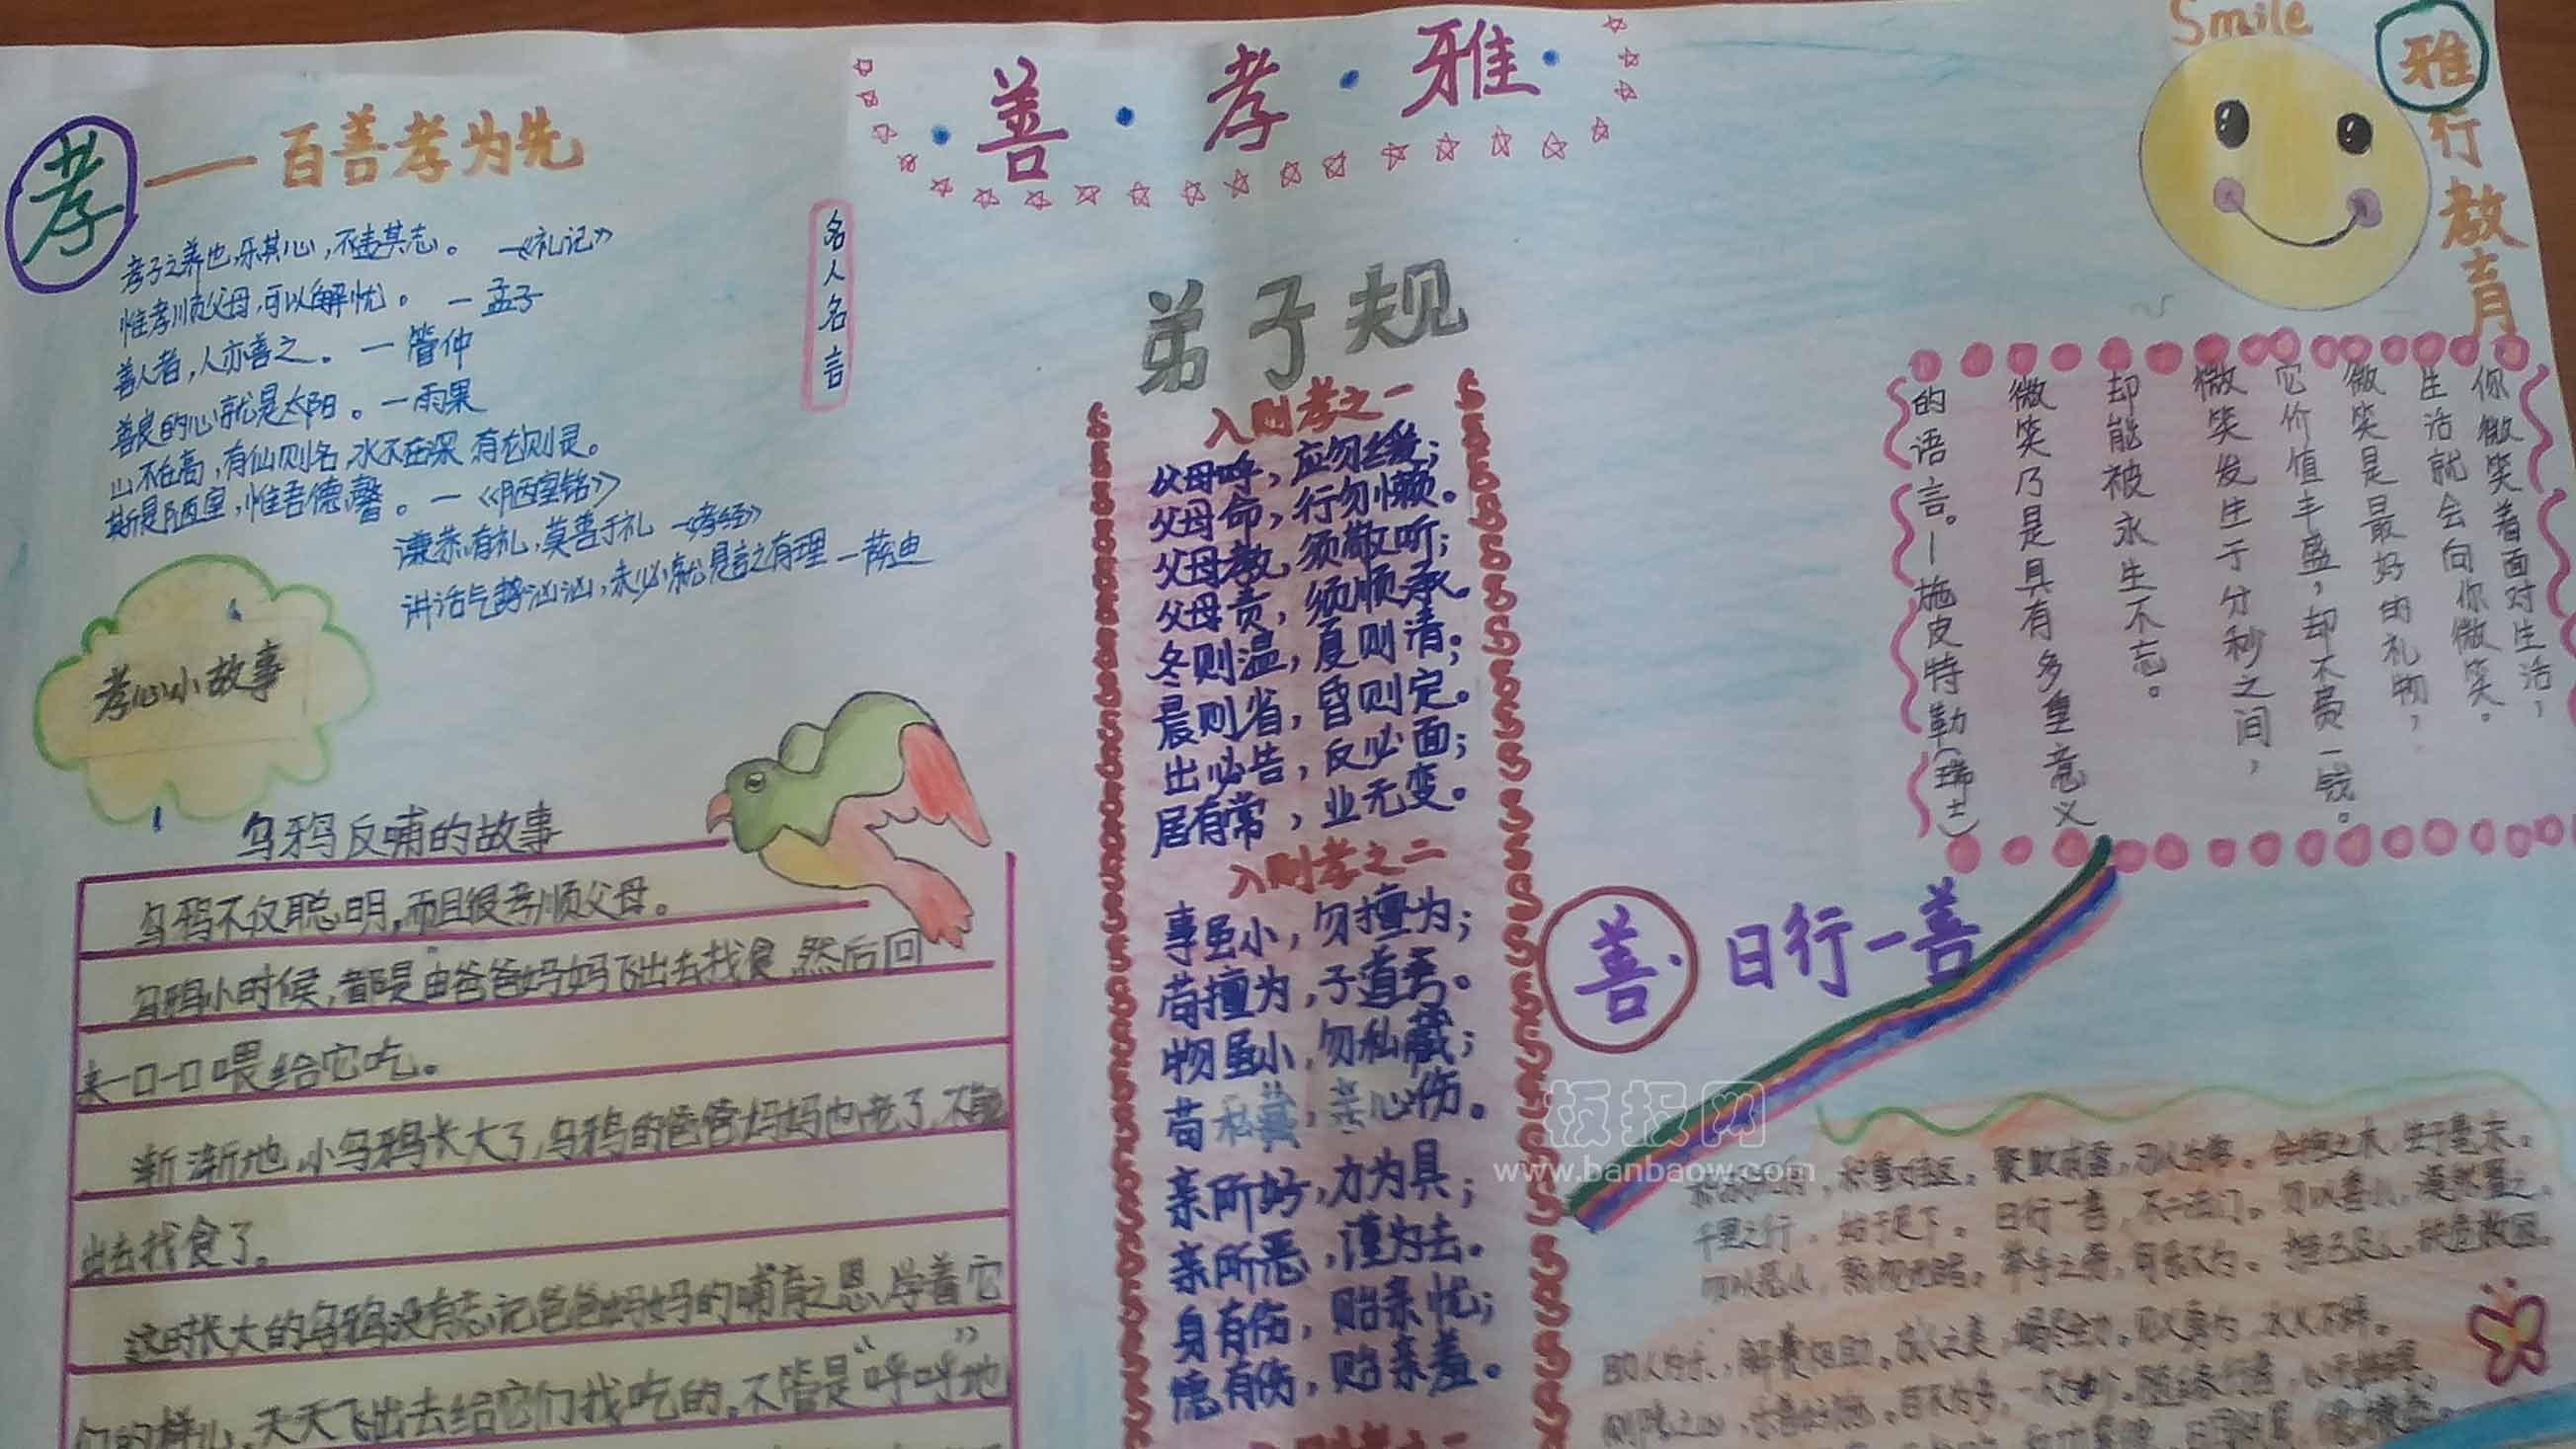 善·孝·雅·
孝——百善孝为先
孝子之养也,乐其心,不违其志。 —《礼记》
惟孝顺父母,可以解忧。 — 孟子
善人者,人亦善之。 — 管仲
善良的心就是太阳。 — 雨果
山不在高,有仙则名,水不在深 有龙则灵。
斯是陋室,惟吾德馨。 — 《陋室铭》
谦恭有礼,莫善于礼 —《孝经》
讲话气势汹汹,未必就是言之有理 — 萨迪
名人名言
孝心小故事
乌鸦反哺的故事
乌鸦不仅聪明,而且很孝顺父母。
乌鸦小时候,都是由爸爸妈妈飞出去找食,然后回
来一口一口喂给它吃。
渐渐地,小乌鸦长大了,乌鸦的爸爸妈妈也老了,不能
出去找食了。
这时长大的乌鸦没有忘记爸爸妈妈的哺育之恩,学着它
们的样儿,天天飞出去给它们找吃的,不管是“呼呼”地
弟子规
入则孝之一
父母呼,应勿缓;
父母命,行勿懒。
父母教,须敬听;
父母责,须顺承。
冬则温,夏则清;
晨则省,昏则定。
出必告,反必面;
居有常,业无变。
入则孝之二
事虽小,勿擅为;
苟擅为,子道亏。
物虽小,勿私藏;
苟私藏,亲心伤。
亲所好,力为具;
亲所恶,谨为去。
身有伤,贻亲忧;
德有伤,贻亲羞。
Smile
雅行教育
你微笑着面对生活,
生活就会向你微笑。
微笑是最好的礼物,
它价值丰盛,却不费一钱。
微笑发生于分秒之间,
却能被永生不忘。
微笑乃是具有多重意义
的语言。—施皮特勒(瑞士)
善·日行一善
板报网
www.banbaow.com
千里之行,始于足下。日行一善,不二法门。